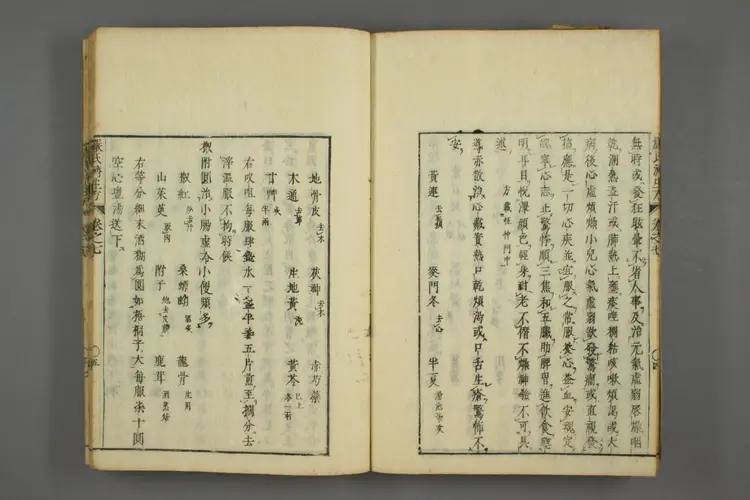 無時或發狂眩暈不省人事及治元氣虛弱唇燥咽
乾潮熱盜汗或肺熱上壅痰唾稠粘咳嗽煩渴或大
病後心虛煩燥小兒心氣虛弱欲發驚癇或直視發
搐應是一切心疾並宜服之常服養心益血安魂定
魄寧心志止驚悸順三焦和五臟助脾胃進飲食聰
明耳目悅澤顏色輕身耐老不憯不燥神驗不可具
述
方藏怔忡門中
導赤散治心藏實熱口乾煩渴或口舌生瘡驚怖不
安
黃連 去鬚 麥門冬 去心 半夏 湯泡
地骨皮 去木 茯神 去木 赤芍藥
木通 去節 生地黃 洗 黃芩 已上各一兩
甘草 炙半兩
右㕮咀每服肆錢水一盞半薑五片煎至捌分去
滓溫服不拘時候
椒附圓治小腸虛冷小便頻多
椒紅 桑螵蛸 龍骨
山茱萸 附子 鹿茸
右等分細末酒糊為圓如梧桐子大每服柒十圓
空心鹽湯送下
卷之七